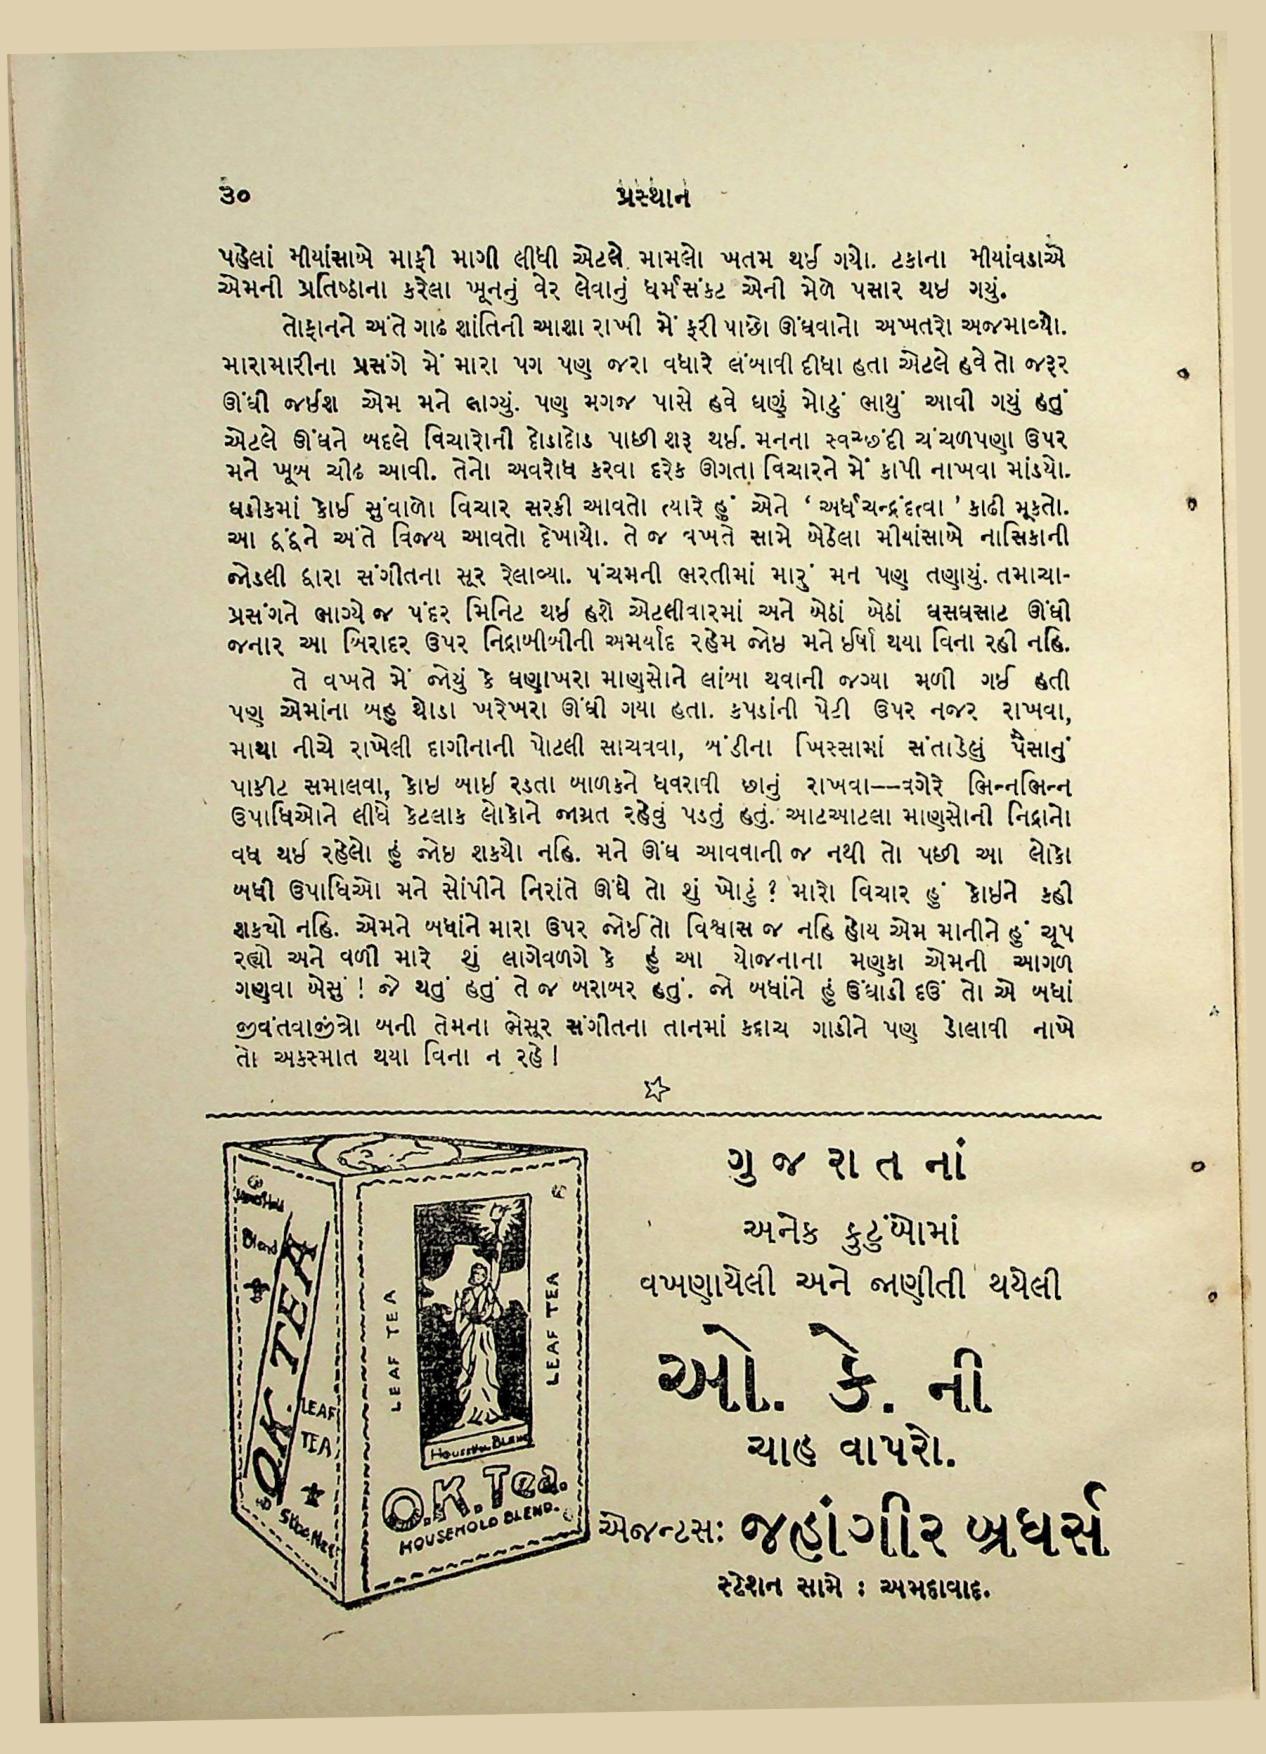 ૩૦
પ્રસ્થાન
પહેલાં મીયાંસાબે માફી માગી લીધી એટલે મામલો ખતમ થઈ ગયો. ટકાના મીયાંવડાએ
એમની પ્રતિષ્ઠાના કરેલા ખૂનનું વેર લેવાનું ધર્મસંકટ એની મેળે પસાર થઇ ગયું.
તોફાનને અંતે ગાઢ શાંતિની આશા રાખી મેં ફરી પાછો ઊંઘવાનો અખતરો અજમાવ્યો.
મારામારીના પ્રસંગે મેં મારા પગ પણ જરા વધારે લંબાવી દીધા હતા એટલે હવે તો જરૂર
ઊંઘી જઈશ એમ મને લાગ્યું. પણ મગજ પાસે હવે ઘણું મોટું ભાથું આવી ગયું હતું
એટલે ઊંઘને બદલે વિચારોની દોડાદોડ પાછી શરૂ થઈ. મનના સ્વચ્છંદી ચંચળપણા ઉપર
મને ખૂબ ચીઢ આવી. તેનો અવરોધ કરવા દરેક ઊગતા વિચારને મેં કાપી નાખવા માંડ્યો.
ઘડીકમાં કોઈ સુંવાળો વિચાર સરકી આવતો ત્યારે હું એને ‘ અર્ધચન્દ્રંદત્વા ’ કાઢી મૂકતો.
આ દ્વંદ્વને અંતે વિજય આવતો દેખાયો. તે જ વખતે સામે બેઠેલા મીયાંસાબે નાસિકાની
જોડલી દ્વારા સંગીતના સૂર રેલાવ્યા. પંચમની ભરતીમાં મારું મન પણ તણાયું. તમાચા-
પ્રસંગને ભાગ્યે જ પંદર મિનિટ થઈ હશે એટલીવારમાં અને બેઠાં બેઠાં ઘસઘસાટ ઊંઘી
જનાર આ બિરાદર ઉપર નિદ્રાબીબીની અમર્યાદ રહેમ જોઇ મને ઈર્ષા થયા વિના રહી નહિ.
તે વખતે મેં જોયું કે ઘણાખરા માણસોને લાંબા થવાની જગ્યા મળી ગઈ હતી
પણ એમાંના બહુ થોડા ખરેખરા ઊંઘી ગયા હતા. કપડાંની પેટી ઉપર નજર રાખવા,
માથા નીચે રાખેલી દાગીનાની પોટલી સાચવવા, બંડીના ખિસ્સામાં સંતાડેલું પૈસાનું
પાકીટ સમાલવા, કોઇ બાઈ રડતા બાળકને ધવરાવી છાનું રાખવા——વગેરે ભિન્નભિન્ન
ઉપાધિઓને લીધે કેટલાક લોકોને જાગ્રત રહેવું પડતું હતું. આટઆટલા માણસોની નિદ્રાનો
વધ થઈ રહેલો હું જોઇ શક્યો નહિ. મને ઊંઘ આવવાની જ નથી તો પછી આ લોકો
બધી ઉપાધિઓ મને સોંપીને નિરાંતે ઊંઘે તો શું ખોટું ? મારો વિચાર હું કોઇને કહી
શક્યો નહિ. એમને બધાંને મારા ઉપર જોઈતો વિશ્વાસ જ નહિ હોય એમ માનીને હું ચૂપ
રહ્યો અને વળી મારે શું લાગેવળગે કે હું આ યોજનાના મણકા એમની આગળ
ગણવા બેસું ! જે થતું હતું તે જ બરાબર હતું. જો બધાંને હું ઉંઘાડી દઉં તો એ બધાં
જીવંતવાજીંત્રો બની તેમના બેસૂર સંગીતના તાનમાં કદાચ ગાડીને પણ ડોલાવી નાખે
તો અકસ્માત થયા વિના ન રહે !
ગુજરાતનાં
અનેક કુટુંબોમાં
વખણાયેલી અને જાણીતી થયેલી
ઓ. કે. ની
ચાહ વાપરો.
એજન્ટસઃ જહાંગીર બ્રધર્સ
સ્ટેશન સામે : અમદાવાદ.
Blend
OK TEA
LEAF
TEA
LEAF TEA
LEAF TEA
HOUSEHOLD BLEND
O.K. Tea.
HOUSEHOLD BLEND.